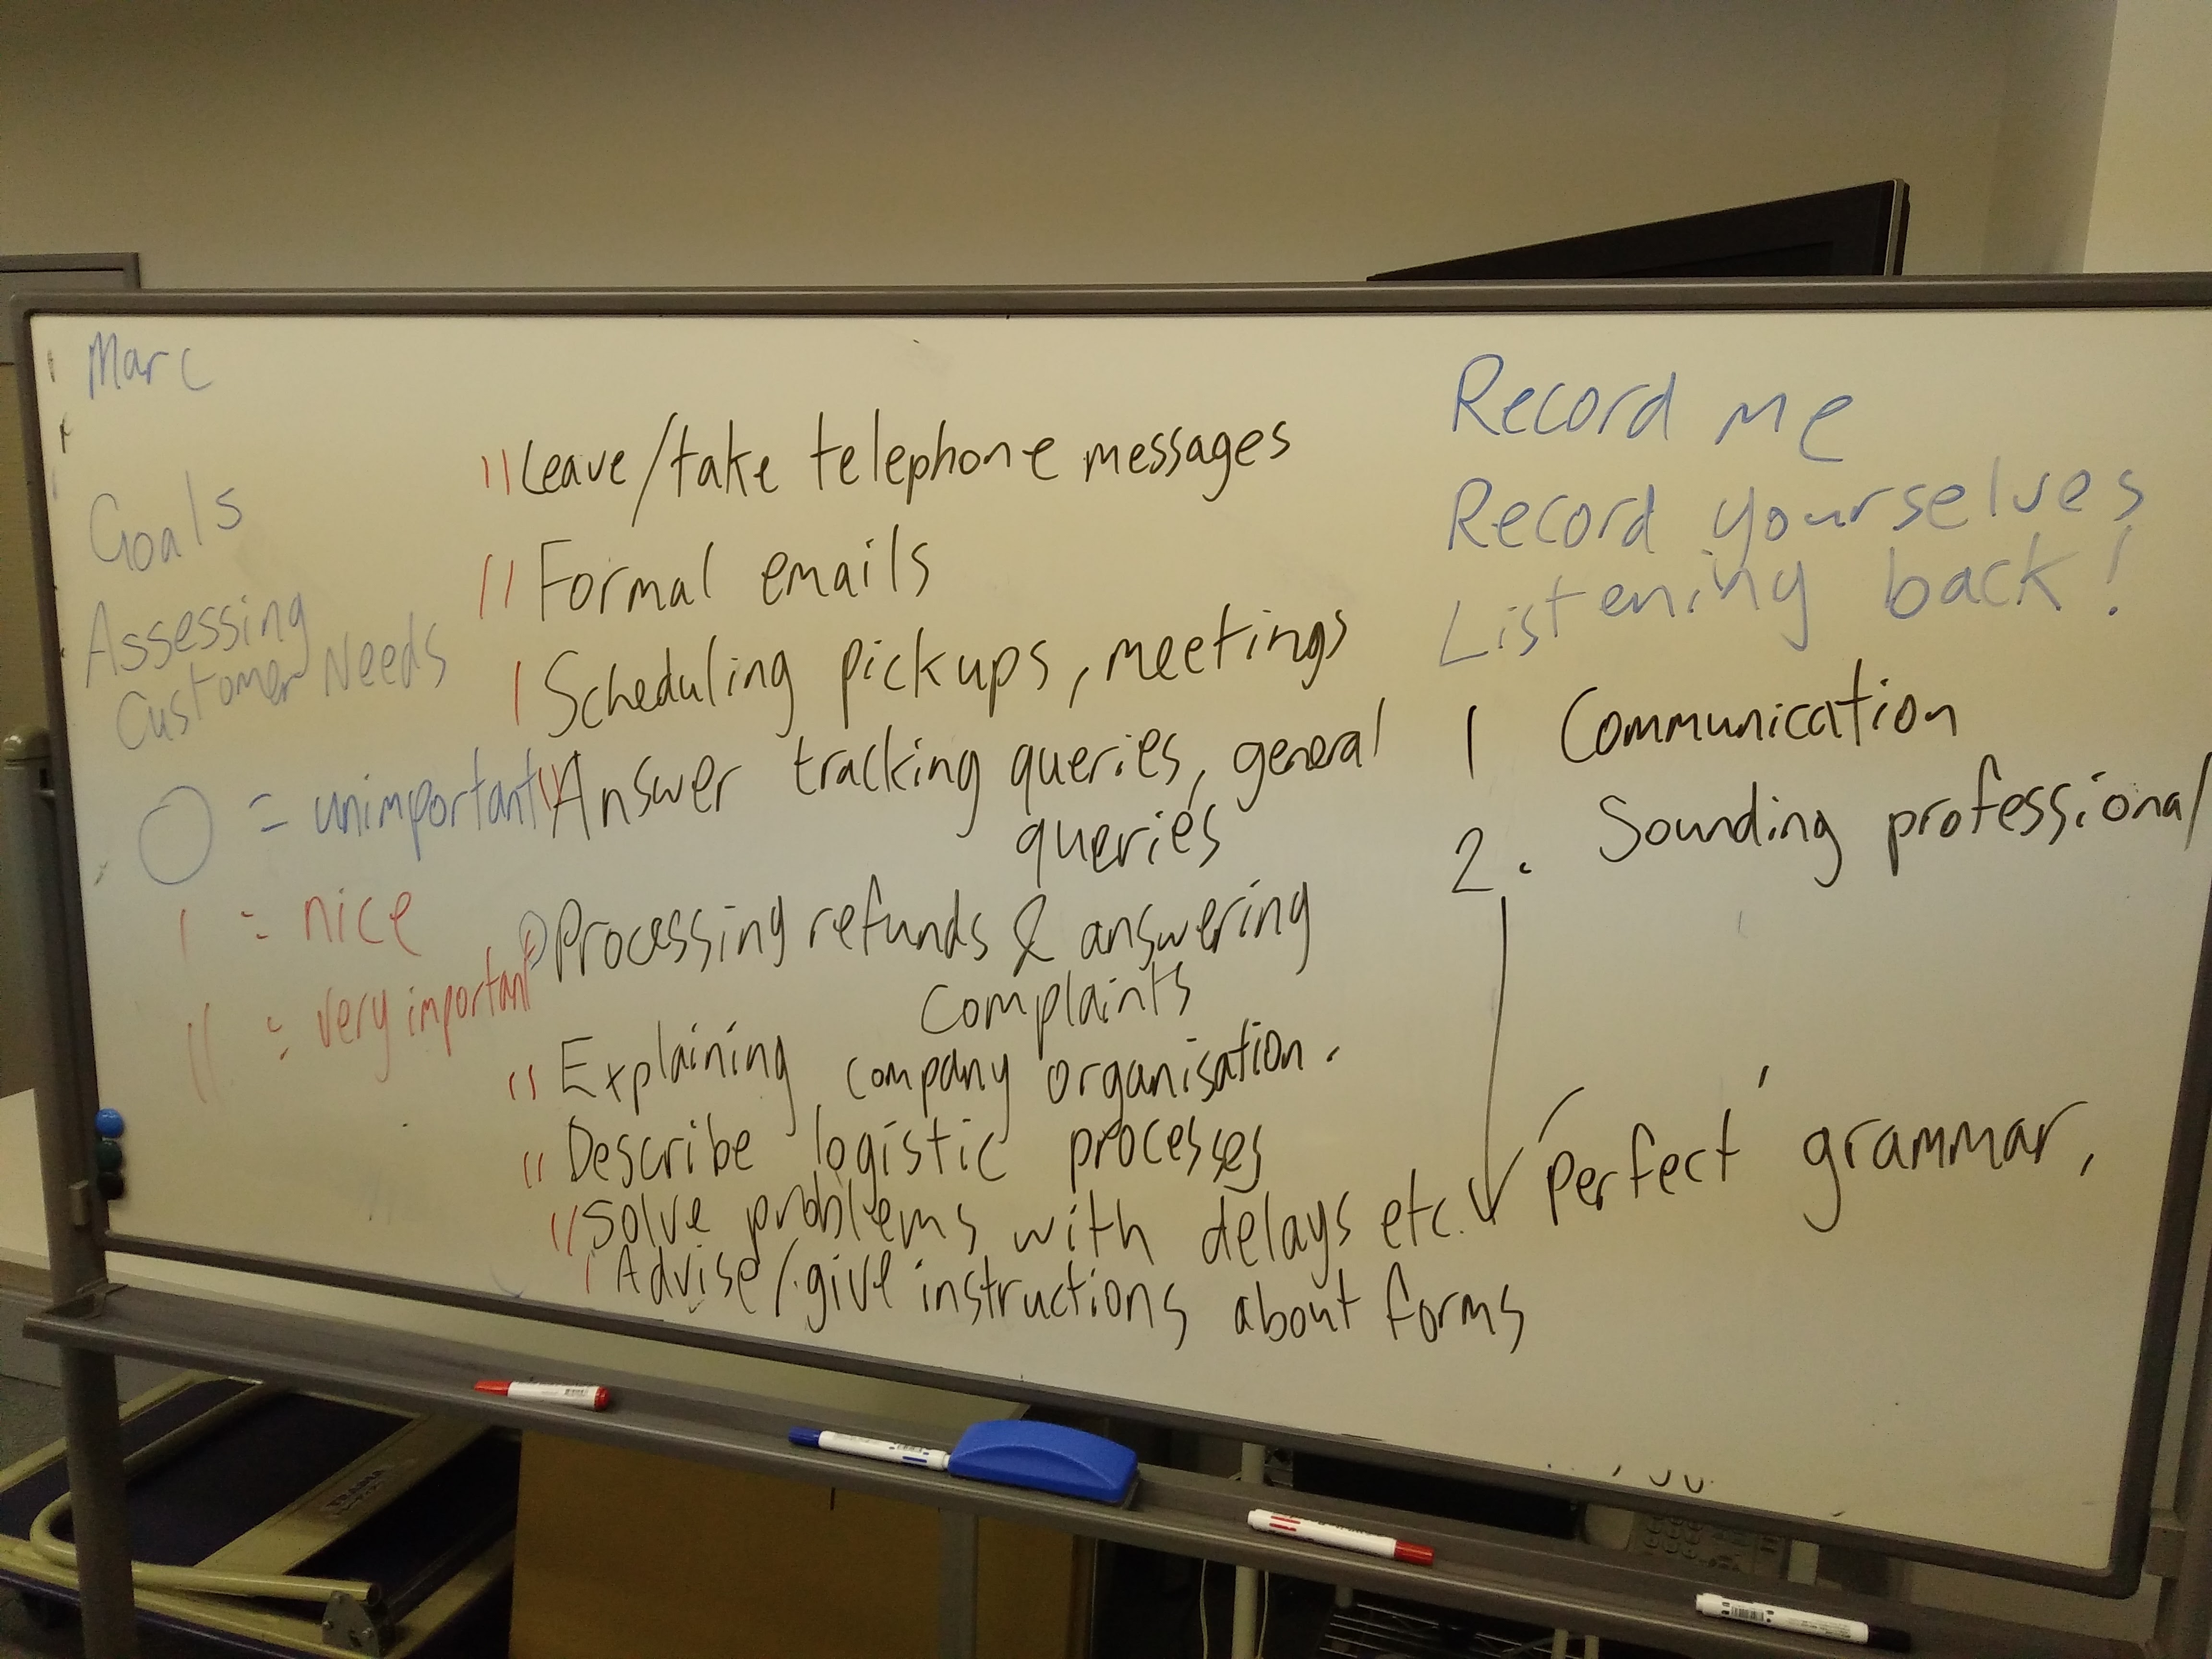 Marc
Goals
Assessing
Customer Needs
O = unimportant
| = nice
|| = very important
|| Leave/take telephone messages
|| Formal emails
| Scheduling pickups, meetings
|| Answer tracking queries, general
queries
O Processing refunds & answering
complaints
|| Explaining company organisation.
|| Describe logistic processes
|| Solve problems with delays etc.
| Advise/give instructions about forms
Record me
Record yourselves
Listening back!
1 Communication
2. Sounding professional
'Perfect' grammar,